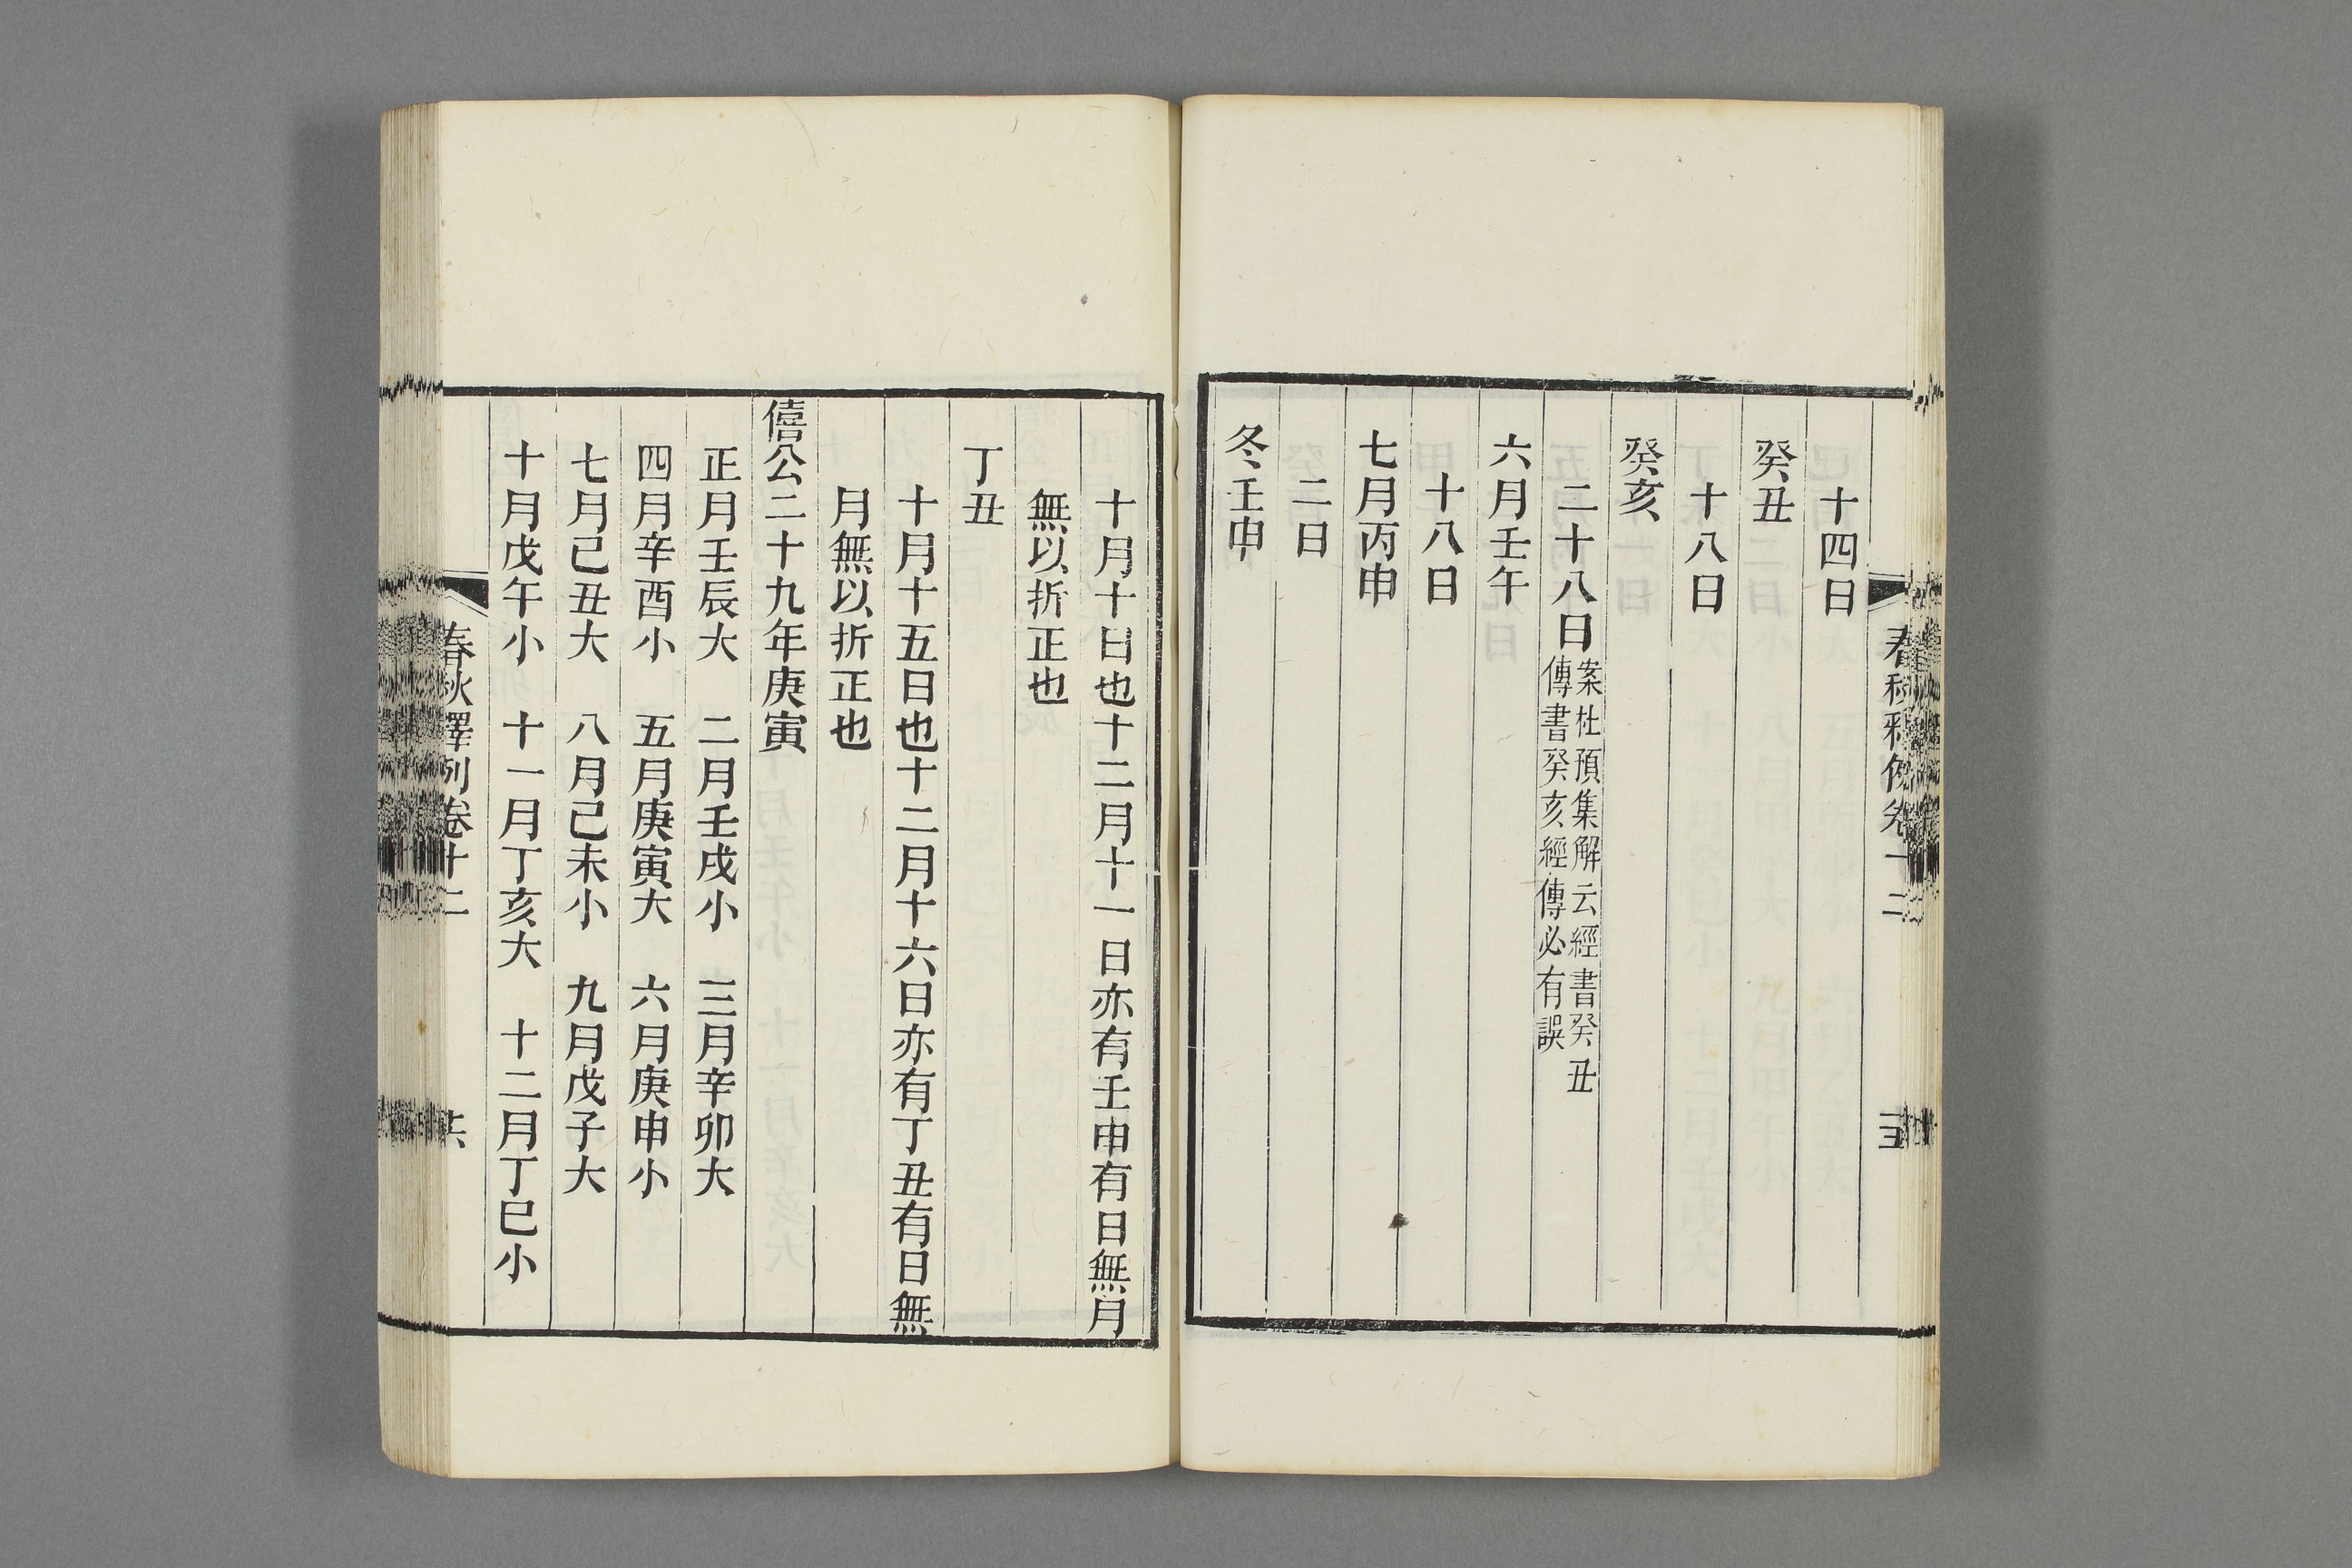 十四日
癸丑
十八日
癸亥
二十八日案杜預集解云經書癸丑
傳書癸亥經傳必有誤
六月壬午
十八日
七月丙申
二日
冬壬申
十月十日也十二月十一日亦有壬申有日無月
無以折正也
丁丑
十月十五日也十二月十六日亦有丁丑有日無
月無以折正也
僖公二十九年庚寅
正月壬辰大　二月壬戌小　三月辛卯大
四月辛酉小　五月庚寅大　六月庚申小
七月己丑大　八月己未小　九月戊子大
十月戊午小　十一月丁亥大　十二月丁巳小
春秋釋例卷十二